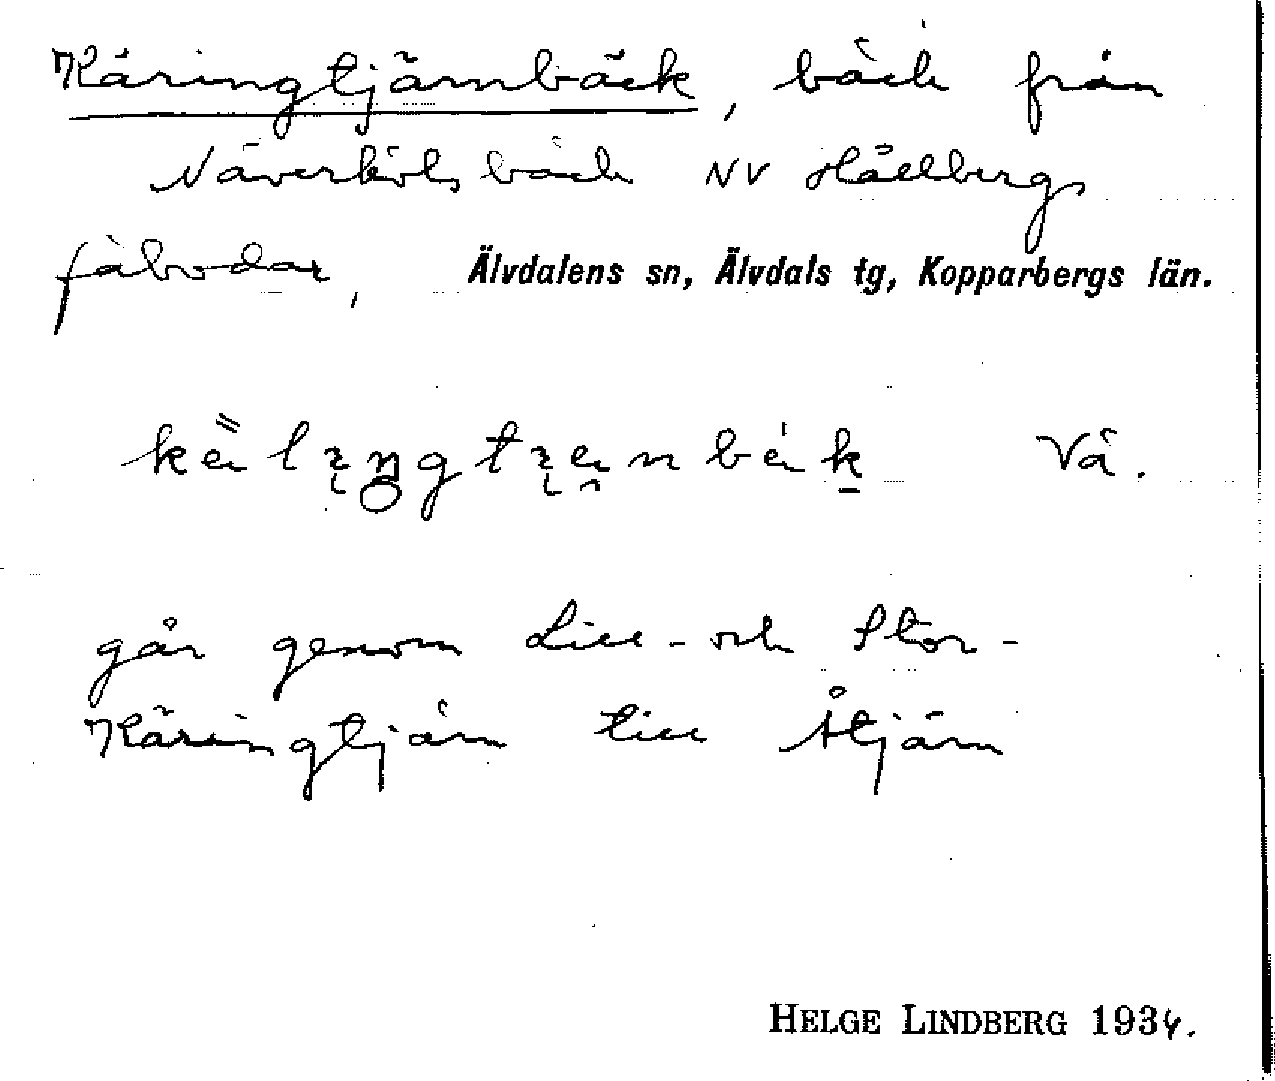 Käringtjärnbäck, bäck från
Näverkölsbäck NV Hållbergs
fäbodar, Älvdalens sn, Älvdals tg, Kopparbergs län.
Vå.
går genom Lill- och Stor-
Käringtjärn till Åtjärn
HELGE LINDBERG 1934.